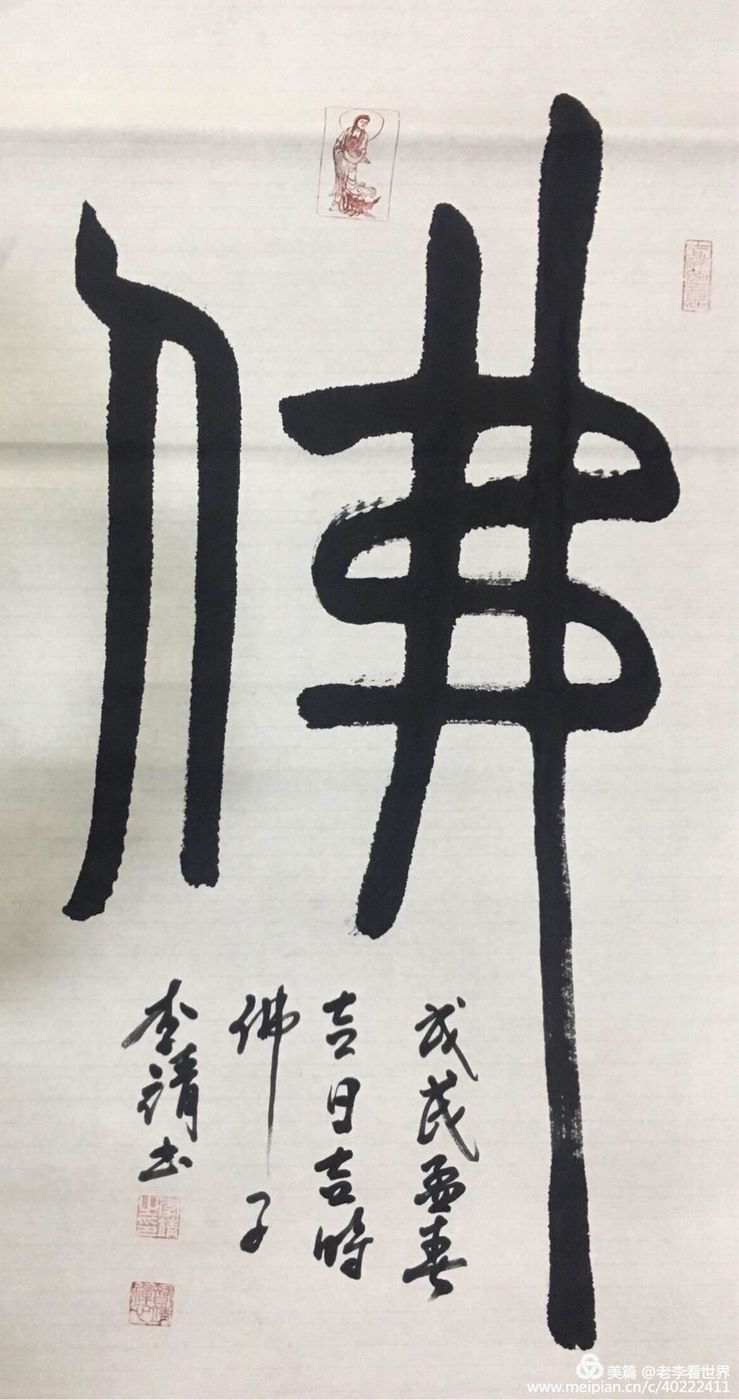 佛
戊戌孟春
吉日吉時
佛子
李靖书
美篇 @老李看世界
www.meipian.cn/c/40222411